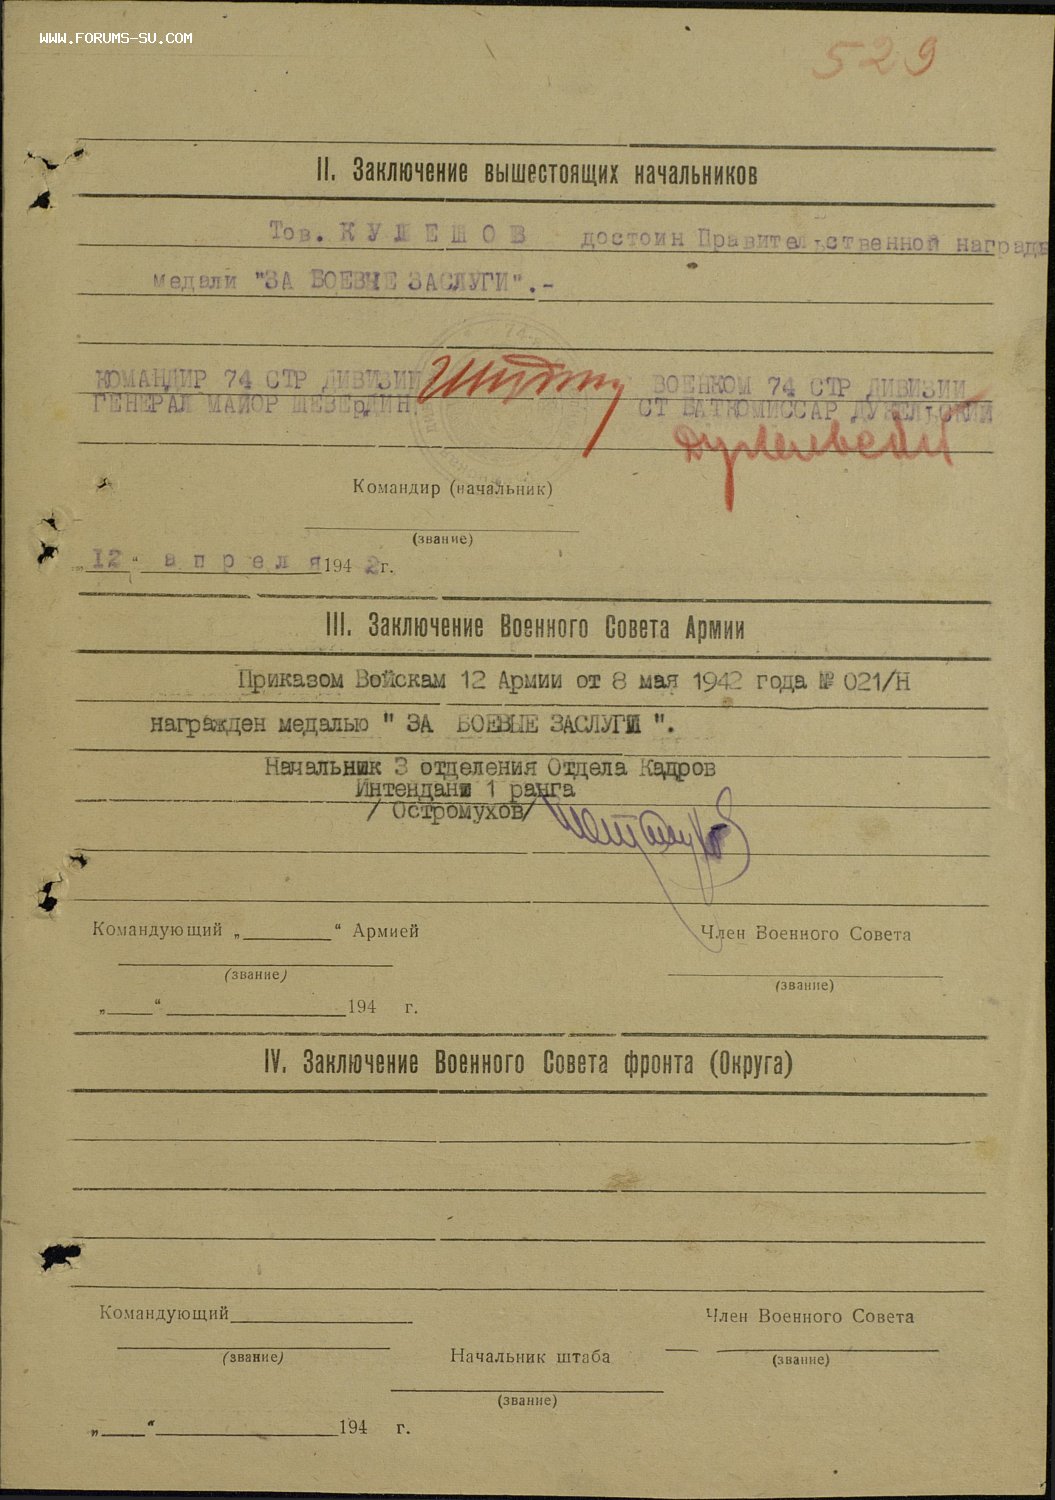 WWW.FORUMS-SU.COM
529
II. Заключение вышестоящих начальников
Тов. К У Л Е Ш О В достоин Правительственной награды
медали "ЗА БОЕВЫЕ ЗАСЛУГИ".-
КОМАНДИР 74 СТР ДИВИЗИИ
ГЕНЕРАЛ МАЙОР ШЕВЕРДИН.
ВОЕНКОМ 74 СТР ДИВИЗИИ
СТ БАТКОМИССАР ДУЖЕЛЬСКИЙ
Командир (начальник)
(звание)
„12“ а п р е л я 1942г.
III. Заключение Военного Совета Армии
Приказом Войскам 12 Армии от 8 мая 1942 года № 021/Н
награжден медалью " ЗА БОЕВЫЕ ЗАСЛУГИ ".
Начальник 3 отделения Отдела Кадров
Интендант 1 ранга
/ Остромухов/
Командующий „ “ Армией
Член Военного Совета
(звание)
(звание)
„ “ 194 г.
IV. Заключение Военного Совета фронта (Округа)
Командующий
Член Военного Совета
(звание)
Начальник штаба
(звание)
(звание)
„ “ 194 г.